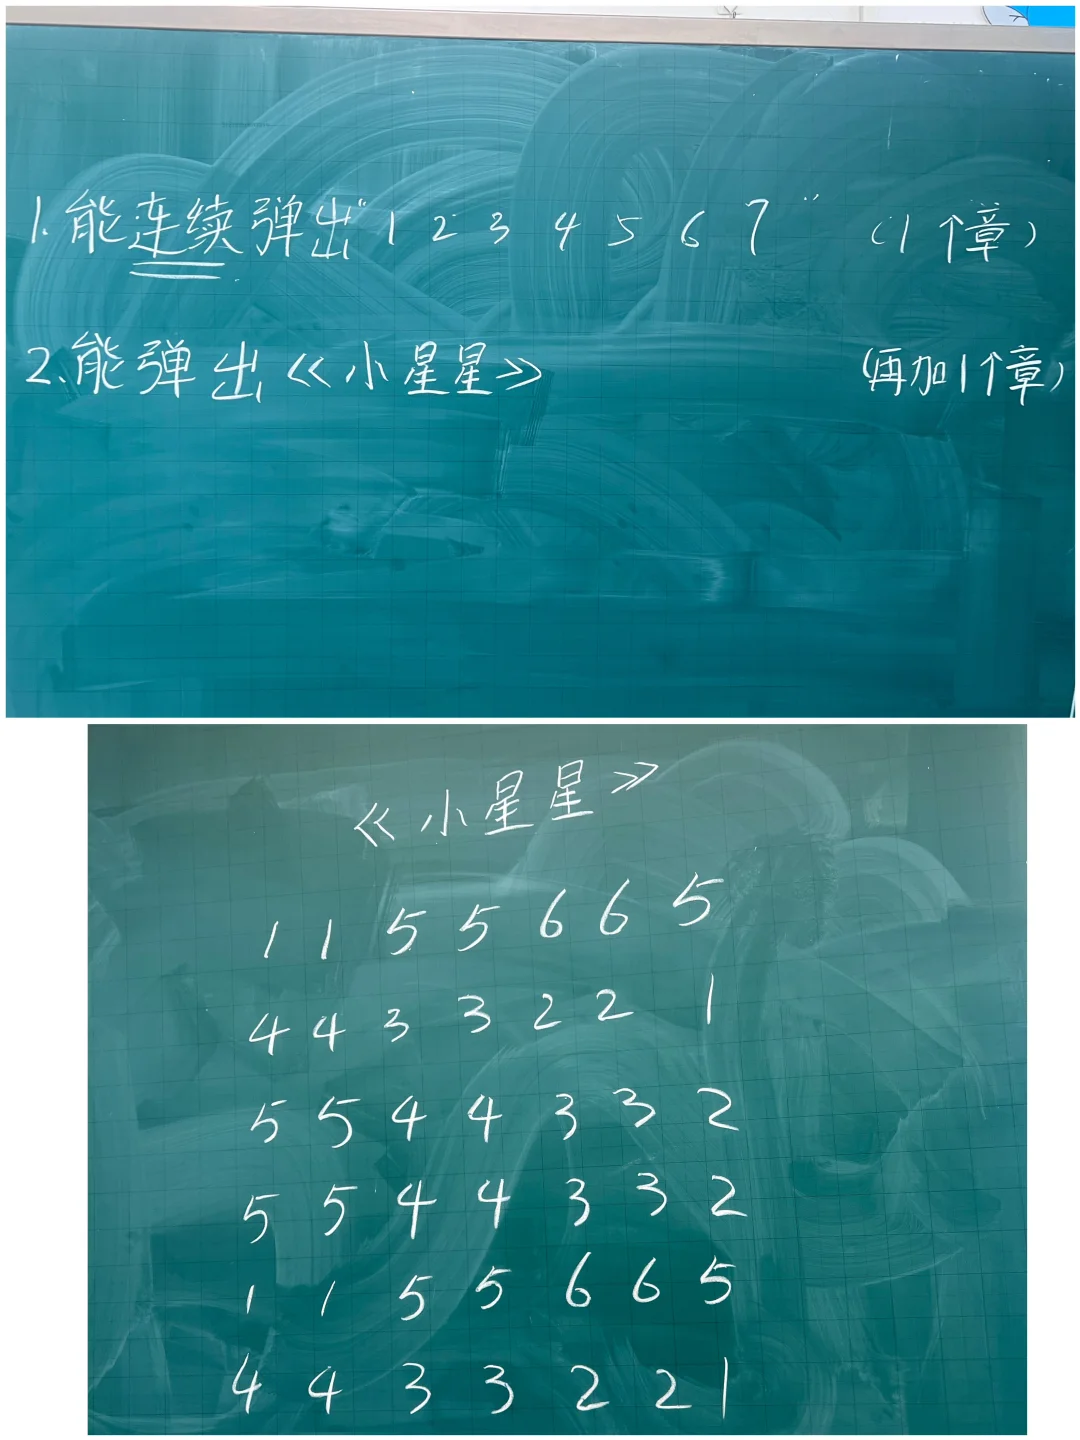 1.能连续弹出“1 2 3 4 5 6 7” (1个章)
2.能弹出《小星星》 (再加1个章)
《小星星》
1 1 5 5 6 6 5
4 4 3 3 2 2 1
5 5 4 4 3 3 2
5 5 4 4 3 3 2
1 1 5 5 6 6 5
4 4 3 3 2 2 1